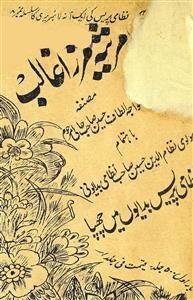 نظامی پریس کی ایک آنہ لائبریری کا سلسلہ نمبر
مرثیہ مرزا غالب
مصنفہ
خواجہ الطاف حسین صاحب حالی مرحوم
باہتمام
مولوی نظام الدین حسین صاحب نظامی بدایونی
نظامی پریس بدایوں میں چھپا
جلد قیمت فی جلد